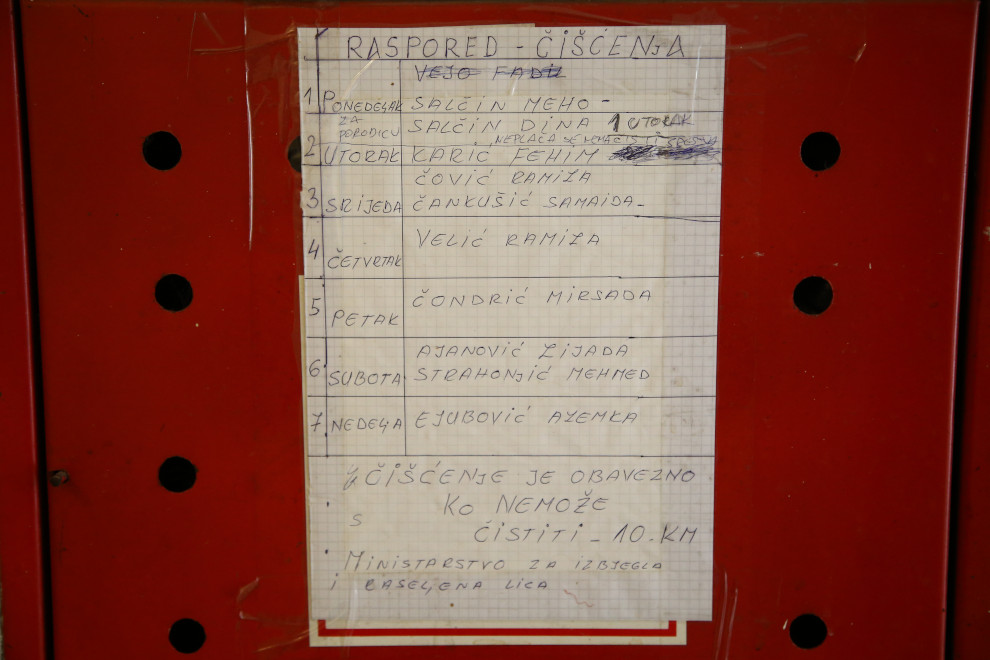 RASPORED - ČIŠĆENJA
VEJO FADIL
1 PONEDELJAK SALČIN MEHO -
ZA PORODICU SALČIN DINA 1 UTORAK
NEPLAČA SE
2 UTORAK KARIĆ FEHIM
ČOVIĆ RAMIZA
3 SRIJEDA ČANKUŠIĆ SAMAIDA -
4 ČETVRTAK VELIĆ RAMIZA
5 PETAK ČONDRIĆ MIRSADA
AJANOVIĆ ZIJADA
6 SUBOTA STRAHONJIĆ MEHMED
7 NEDELJA EJUBOVIĆ AZEMKA
ČIŠĆENJE JE OBAVEZNO
KO NEMOŽE
S
ČISTITI - 10. KM
MINISTARSTVO ZA IZBJEGLA
I RASELJENA LICA